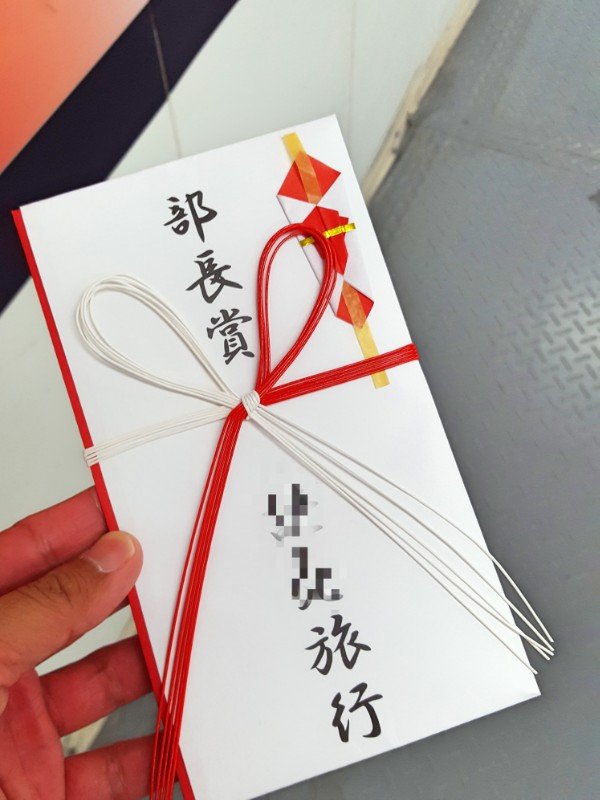 部長賞
旅行